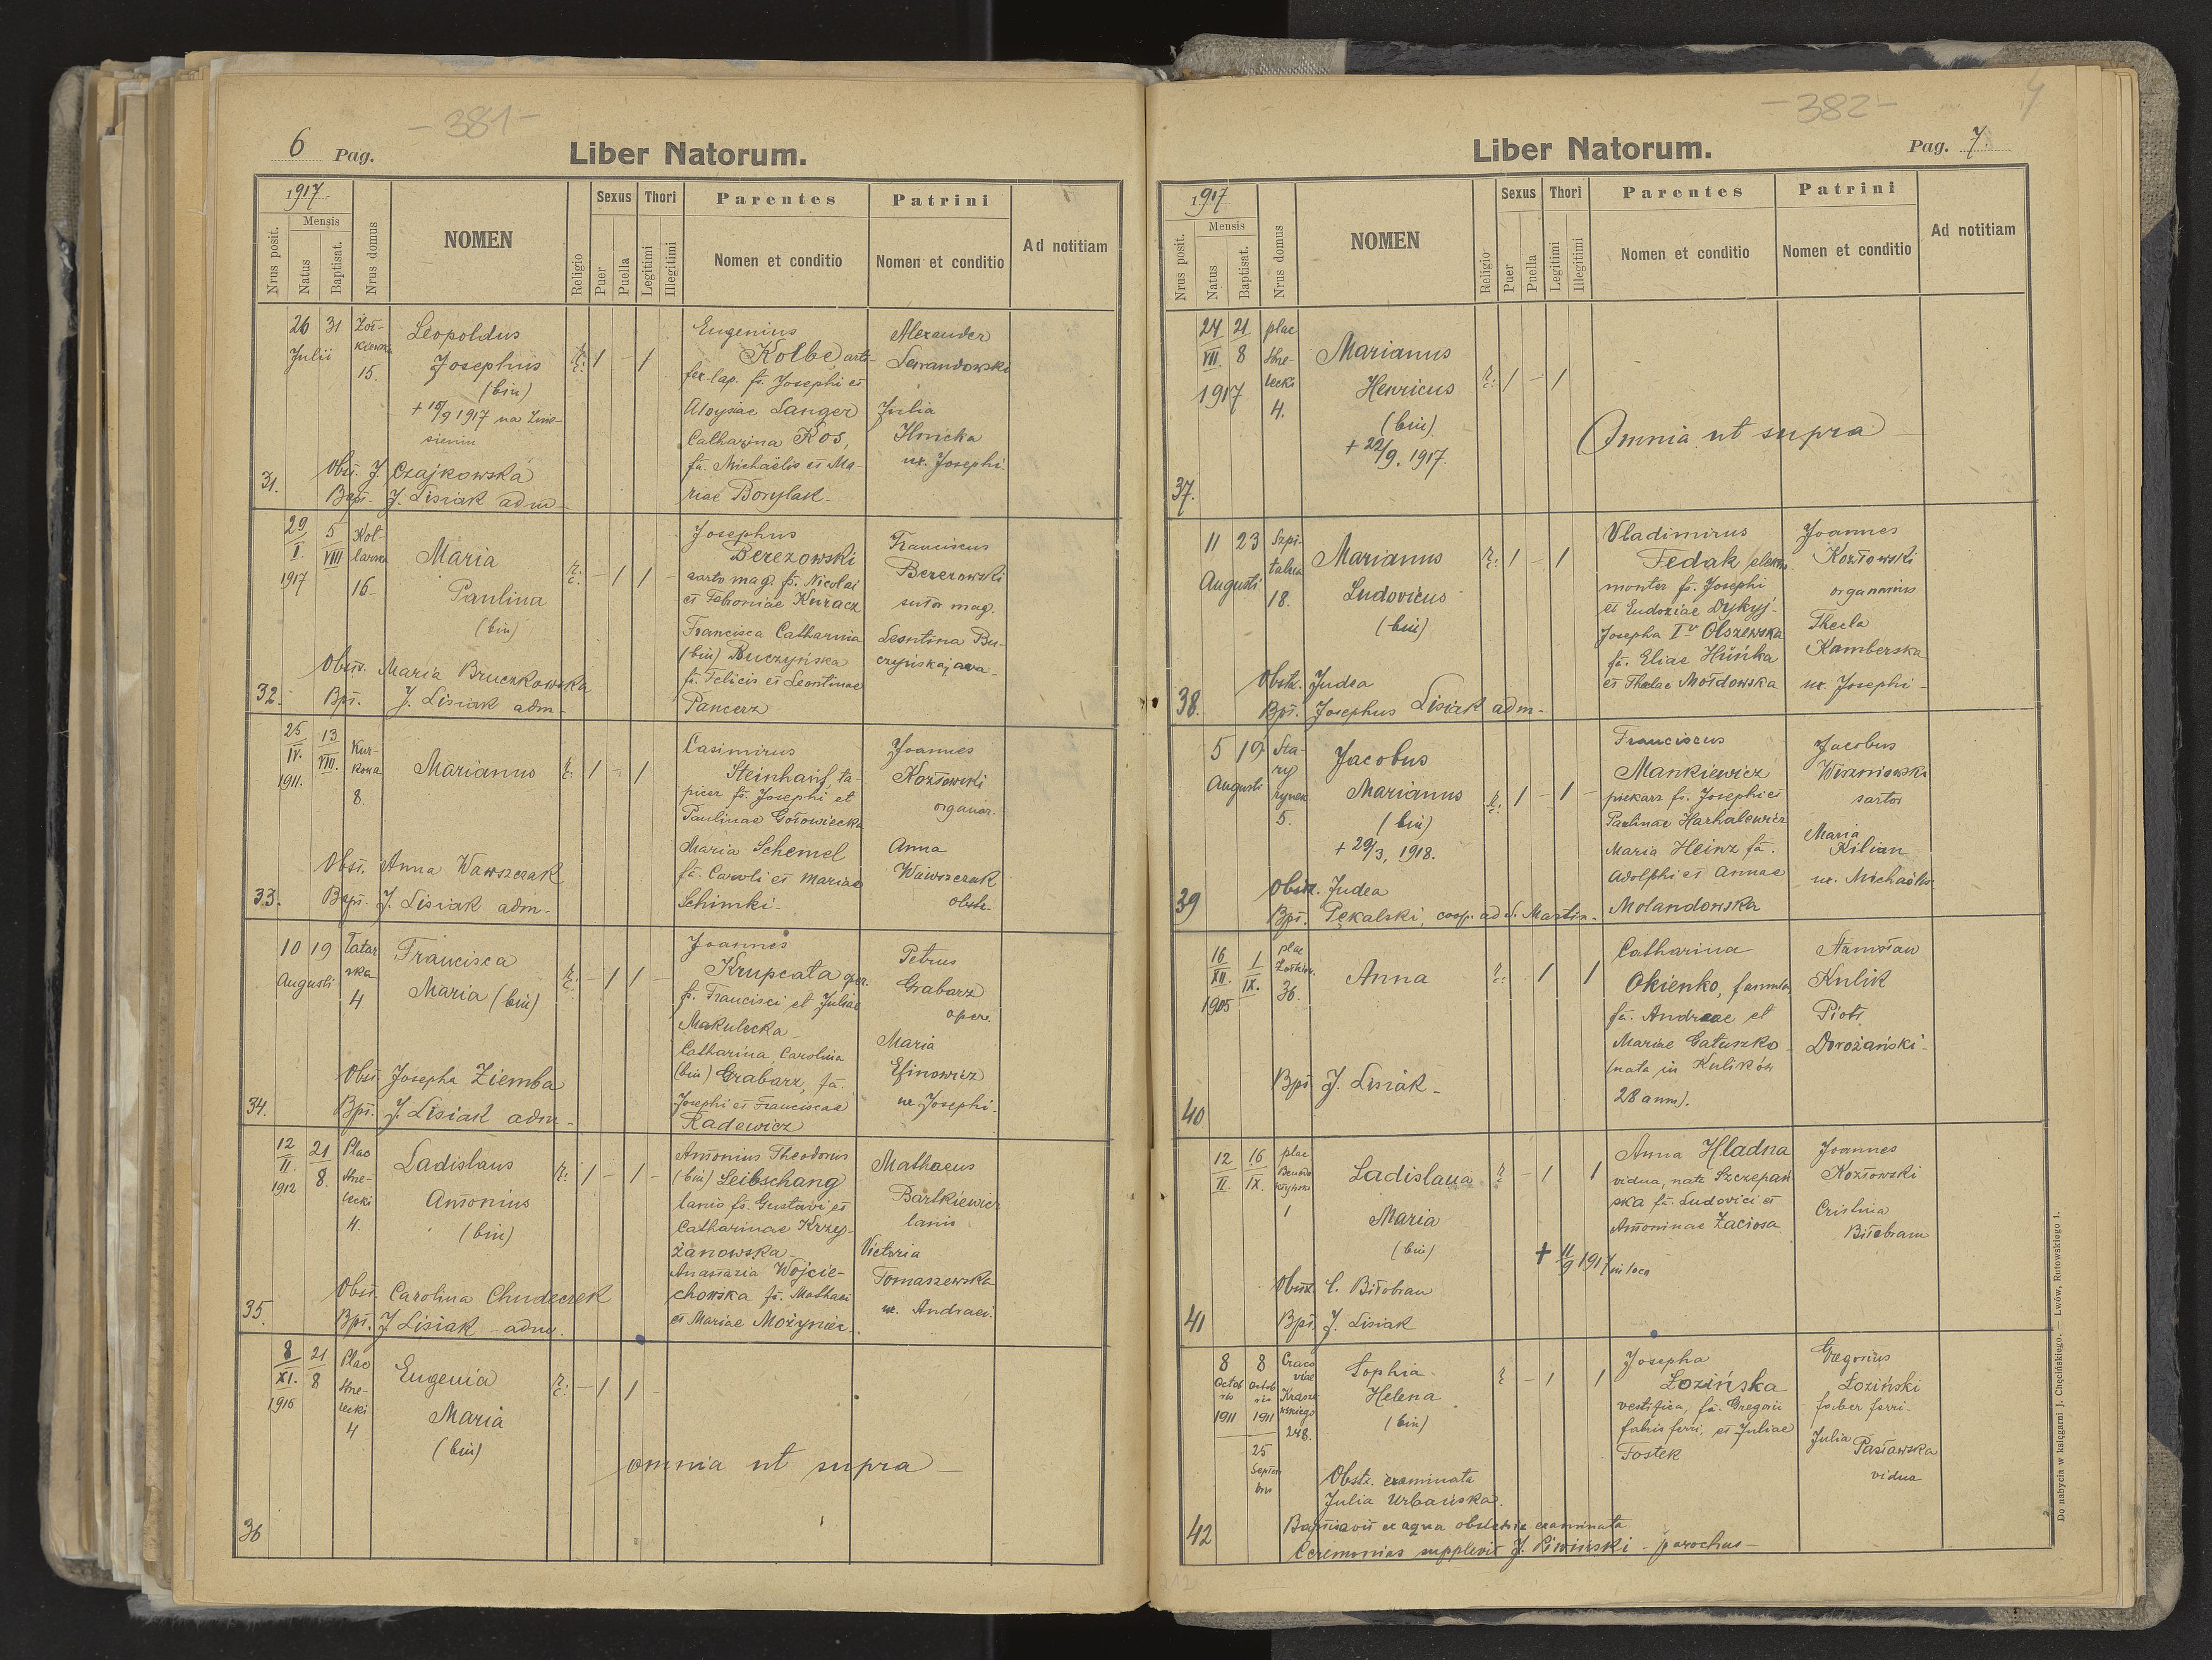 - 381 -
6 Pag.
Liber Natorum.
1917
Mensis
Nrus posit.
Natus
Baptisat.
Nrus domus
NOMEN
Religio
Sexus
Puer
Puella
Thori
Legitimi
Illegitimi
Parentes
Nomen et conditio
Patrini
Nomen et conditio
Ad notitiam
31.
26 31
Julii
15.
Leopoldus
Josephus
(bin)
+ 15/9 1917 na
Obst. J. Czajkowska
Bapt. J. Lisiak adm
Eugenius
Kolbe,
Josephi et
Aloysiae Langer
Catharina Kos,
fa. Michaëlis et Ma-
riae Borylak -
Alexander
Lewandowski
Julia
Ilnicka
ux. Josephi.
32.
29 5
I. VIII
1917
Kot-
larska
16
Maria
Paulina
(bin)
Obst. Maria Bruczkowska
Bpt. J. Lisiak adm -
Josephus
Berezowski
sarto mag. fs. Nicolai
et Febroniae Kuracz
Francisca Catharina
(bin) Buczyńska
fa. Felicis et Leontinae
Pancerz
Franciscus
Berezowski
sutor mag.
Leontina Bu-
czyńska, ava -
33.
25 13
IV. VIII.
1911.
Kur-
kowa
8.
Marianus
Obst. Anna Wawszczak
Bapt. J. Lisiak adm -
Casimirus
Steinhauf, ta-
picer fs. Josephi et
Paulinae Gołowiecka
Maria Schemel
fa. Caroli et Mariae
Schimki -
Joannes
Kozłowski
organar.
Anna
Wawszczak
obstr.
34.
10 19
Augusti
Tatar
ska
4
Francisca
Maria (bin)
Obst. Josepha Ziemba
Bpt. J. Lisiak adm -
Joannes
Krupcata oper.
fs. Francisci et Juliae
Makulecka -
Catharina Carolina
(bin) Grabarz, fa.
Josephi et Franciscae
Radewicz
Petrus
Grabarz
oper.
Maria
Efinowicz
ux Josephi.
35.
12 21
II. 8.
1912
Plac
Strze-
lecki
4.
Ladislaus
Antonius
(bin)
Obst. Carolina Chudeczek
Bpt. J. Lisiak - adm.
Antonius Theodorus
(bin) Leibschang
lanio fs. Gustavi et
Catharinae Krzy-
żanowska -
Anastazia Wojcie-
chowska fa. Mathaei
et Mariae
Mathaeus
Bartkiewicz
lanio
Victoria
Tomaszewska
ux. Andraei.
36
8 21
XI. 8
1916
Plac
Strze-
lecki
4
Eugenia
Maria
(bin)
omnia ut supra -
- 382 -
Liber Natorum.
Pag. 7.
1917
Mensis
Nrus posit.
Natus
Baptisat.
Nrus domus
NOMEN
Religio
Sexus
Puer
Puella
Thori
Legitimi
Illegitimi
Parentes
Nomen et conditio
Patrini
Nomen et conditio
Ad notitiam
37.
24 21
VII. 8
1917
plac
Strze-
lecki
4.
Marianus
Henricus
(bin)
+ 22/9. 1917.
Omnia ut supra
38.
11 23
Augusti
Szpi-
talna
18.
Marianus
Ludovicus
(bin)
Obstr. Judea
Bpt. Josephus Lisiak adm -
Vladimirus
Fedak
monter fs. Josephi
et Eudoxiae Dykyj -
Josepha Olszewska
fa. Eliae Huńka
et Theclae Mołdowska
Joannes
Kozłowski
organarius
Thecla
Kamberska
ux. Josephi -
39
5 19
Augusti
Sta-
ry
rynek
5.
Jacobus
Marianus
(bin)
+ 29/3, 1918.
Obstr. Judea
Bpt. Pękalski, coop. ad S. Martin -
Franciscus
Mankiewicz
piekarz fs. Josephi et
Paulinae Harhalewicz
Maria Heinz fa.
Adolphi et Annae
Molandowska
Jacobus
Wiszniowski
sartor
Maria
Kilian
ux. Michaëlis
40
16 1
XII. IX.
1905
plac
36.
Anna
Bpt J. Lisiak -
Catharina
Okienko, famula
fa. Andreae et
Mariae Gatuszko -
(nata in Kulików
28 ann).
Stanisław
Kulik
Piotr
Dorożański -
41
12 16
II. IX.
plac
1
Ladislaua
Maria
(bin)
+ 11/9 1917 in loco
Obstr. C. Biłobran
Bpt. J. Lisiak
Anna Hladna
vidua, nata Szczepań
ska fa. Ludovici et
Antoninae Zaciosa
Joannes
Kozłowski
Cristina
Biłobram
42
8 8
Octob Octob
ris ris
1911 1911
25
Septem
bris
Craco
viae
Krasze
wskiego
248.
Sophia
Helena
(bin)
Obstr. examinata
Julia Urbańska.
Baptisavit ex aqua obstetrix examinata
Ceremonias supplevit J. Piwiński - parochus -
Josepha
Łozińska
vestifica, fa. Gregorii
fabri ferri, et Juliae
Fostek
Gregorius
Łoziński
faber ferri -
Julia Pasławska
vidua
Do nabycia w księgarni J. Chęcińskiego. — Lwów, Rutowskiego 1.